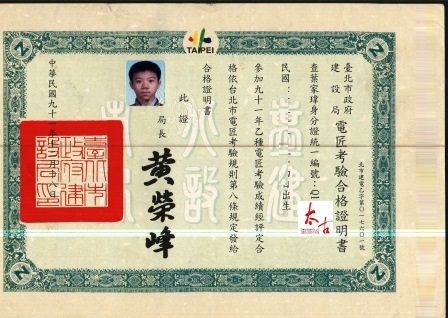 TAIPEI
臺北市政府
建設局
電匠考驗合格證明書
北市建電乙字第〇一七六〇一號
查葉家瑋身分證統一編號:Q1
民國
出生
參加九十一年乙種電匠考驗成績經評定合
格依台北市電匠考驗規則第八條規定發給
合格證明書
此證
局長
黃榮峰
中華民國九十一年
臺北市政府建設局印
太古
N
N
N
N